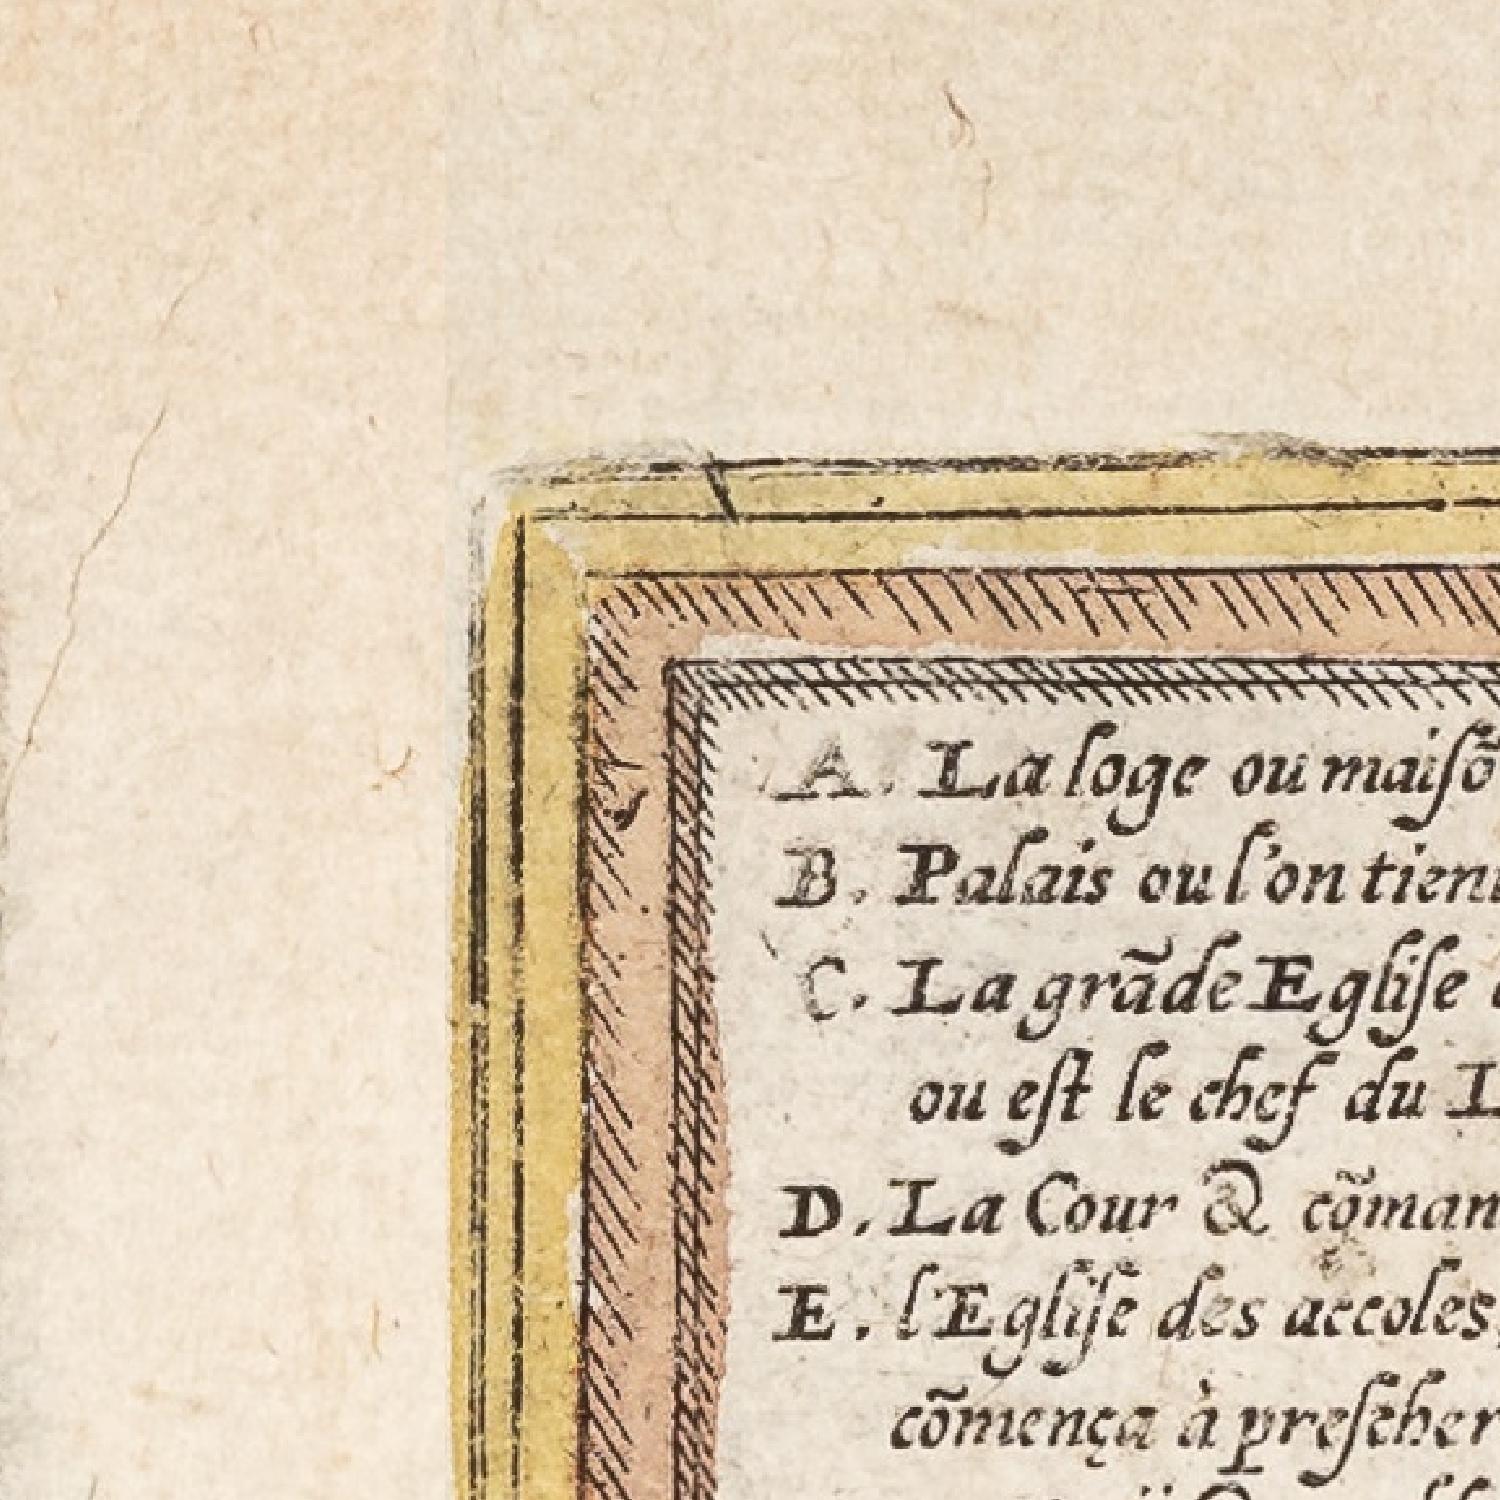 A. La loge ou maiſõ
B. Palais ou l'on tient
C. La grãde Egliſe
ou eſt le chef du L
D. La Cour & cõman
E. l'Egliſe des accoles,
cõmença à preſcher